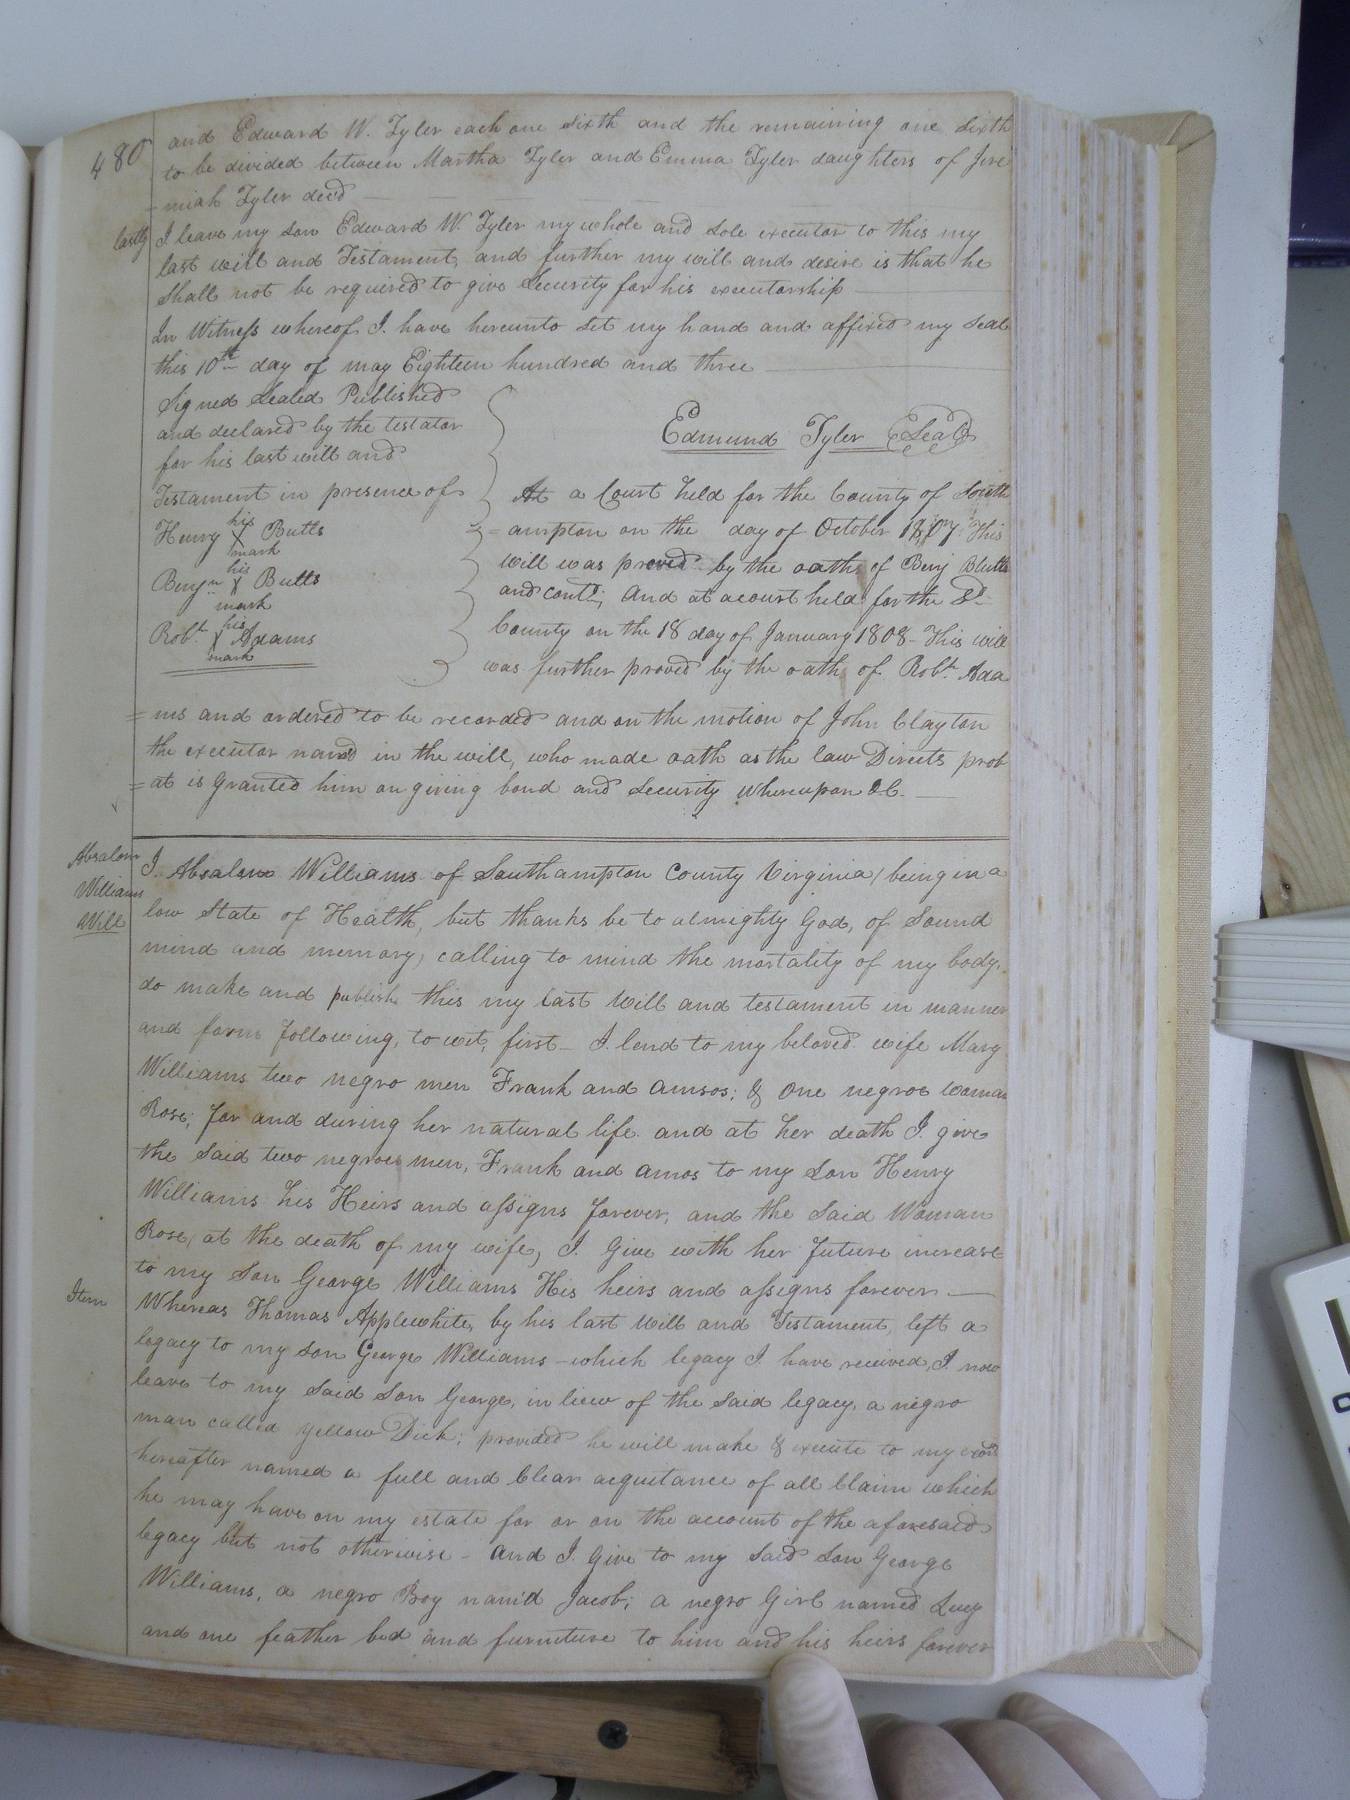 480
and Edward W. Tyler each one sixth and the remaining one sixth
to be divided between Martha Tyler and Emma Tyler daughters of Jere
-miah Tyler decd
lastly I leave my son Edward W. Tyler my whole and sole executor to this my
last will and Testament, and further my will and desire is that he
shall not be required to give security for his executorship
In Witness whereof I have hereunto set my hand and affixed my seal
this 10th day of may Eighteen hundred and three
Signed Sealed Published
and declared by the testator
for his last will and
Testament in presence of
Henry his X mark Butts
Benjn his X mark Butts
Robt his X mark Adams
Edmund Tyler Seal
At a Court held for the County of South
=ampton on the day of October 1807 This
will was proved by the oaths of Benj Butts
and contd; And at a court held for the Sd
County on the 18 day of January 1808 - This will
was further proved by the oath of Robt Ada
=ms and ordered to be recorded and on the motion of John Clayton
the executor named in the will, who made oath as the law Directs prob
=at is granted him on giving bond and security whereupon &C.
Absalom
Williams
Will
I Absalom Williams of Southampton County Virginia, being in a
low State of Health, but thanks be to almighty God, of Sound
mind and memory, calling to mind the mortality of my body,
do make and publish this my last Will and testament in manner
and form following, to wit, first - I lend to my beloved wife Mary
Williams two negro men Frank and Amsos; & one negroe woman
Rose; for and during her natural life and at her death I give
the said two negroes men, Frank and Amos to my son Henry
Williams his Heirs and assigns forever, and the said Woman
Rose, at the death of my wife, I Give with her future increase
to my son George Williams His heirs and assigns forever
Item Whereas Thomas Applewhite, by his last Will and Testament, left a
legacy to my son George Williams - which legacy I have received, I now
leave to my said son George, in liew of the said legacy, a negro
man called yellow Dick; provided he will make & execute to my exors
hereafter named a full and Clear acquitance of all Claim which
he may have on my estate for or on the account of the aforesaid
legacy but not otherwise - and I Give to my said son George
Williams, a negro Boy nam'd Jacob; a negro Girl named Lucy
and one feather bed and furniture to him and his heirs forever